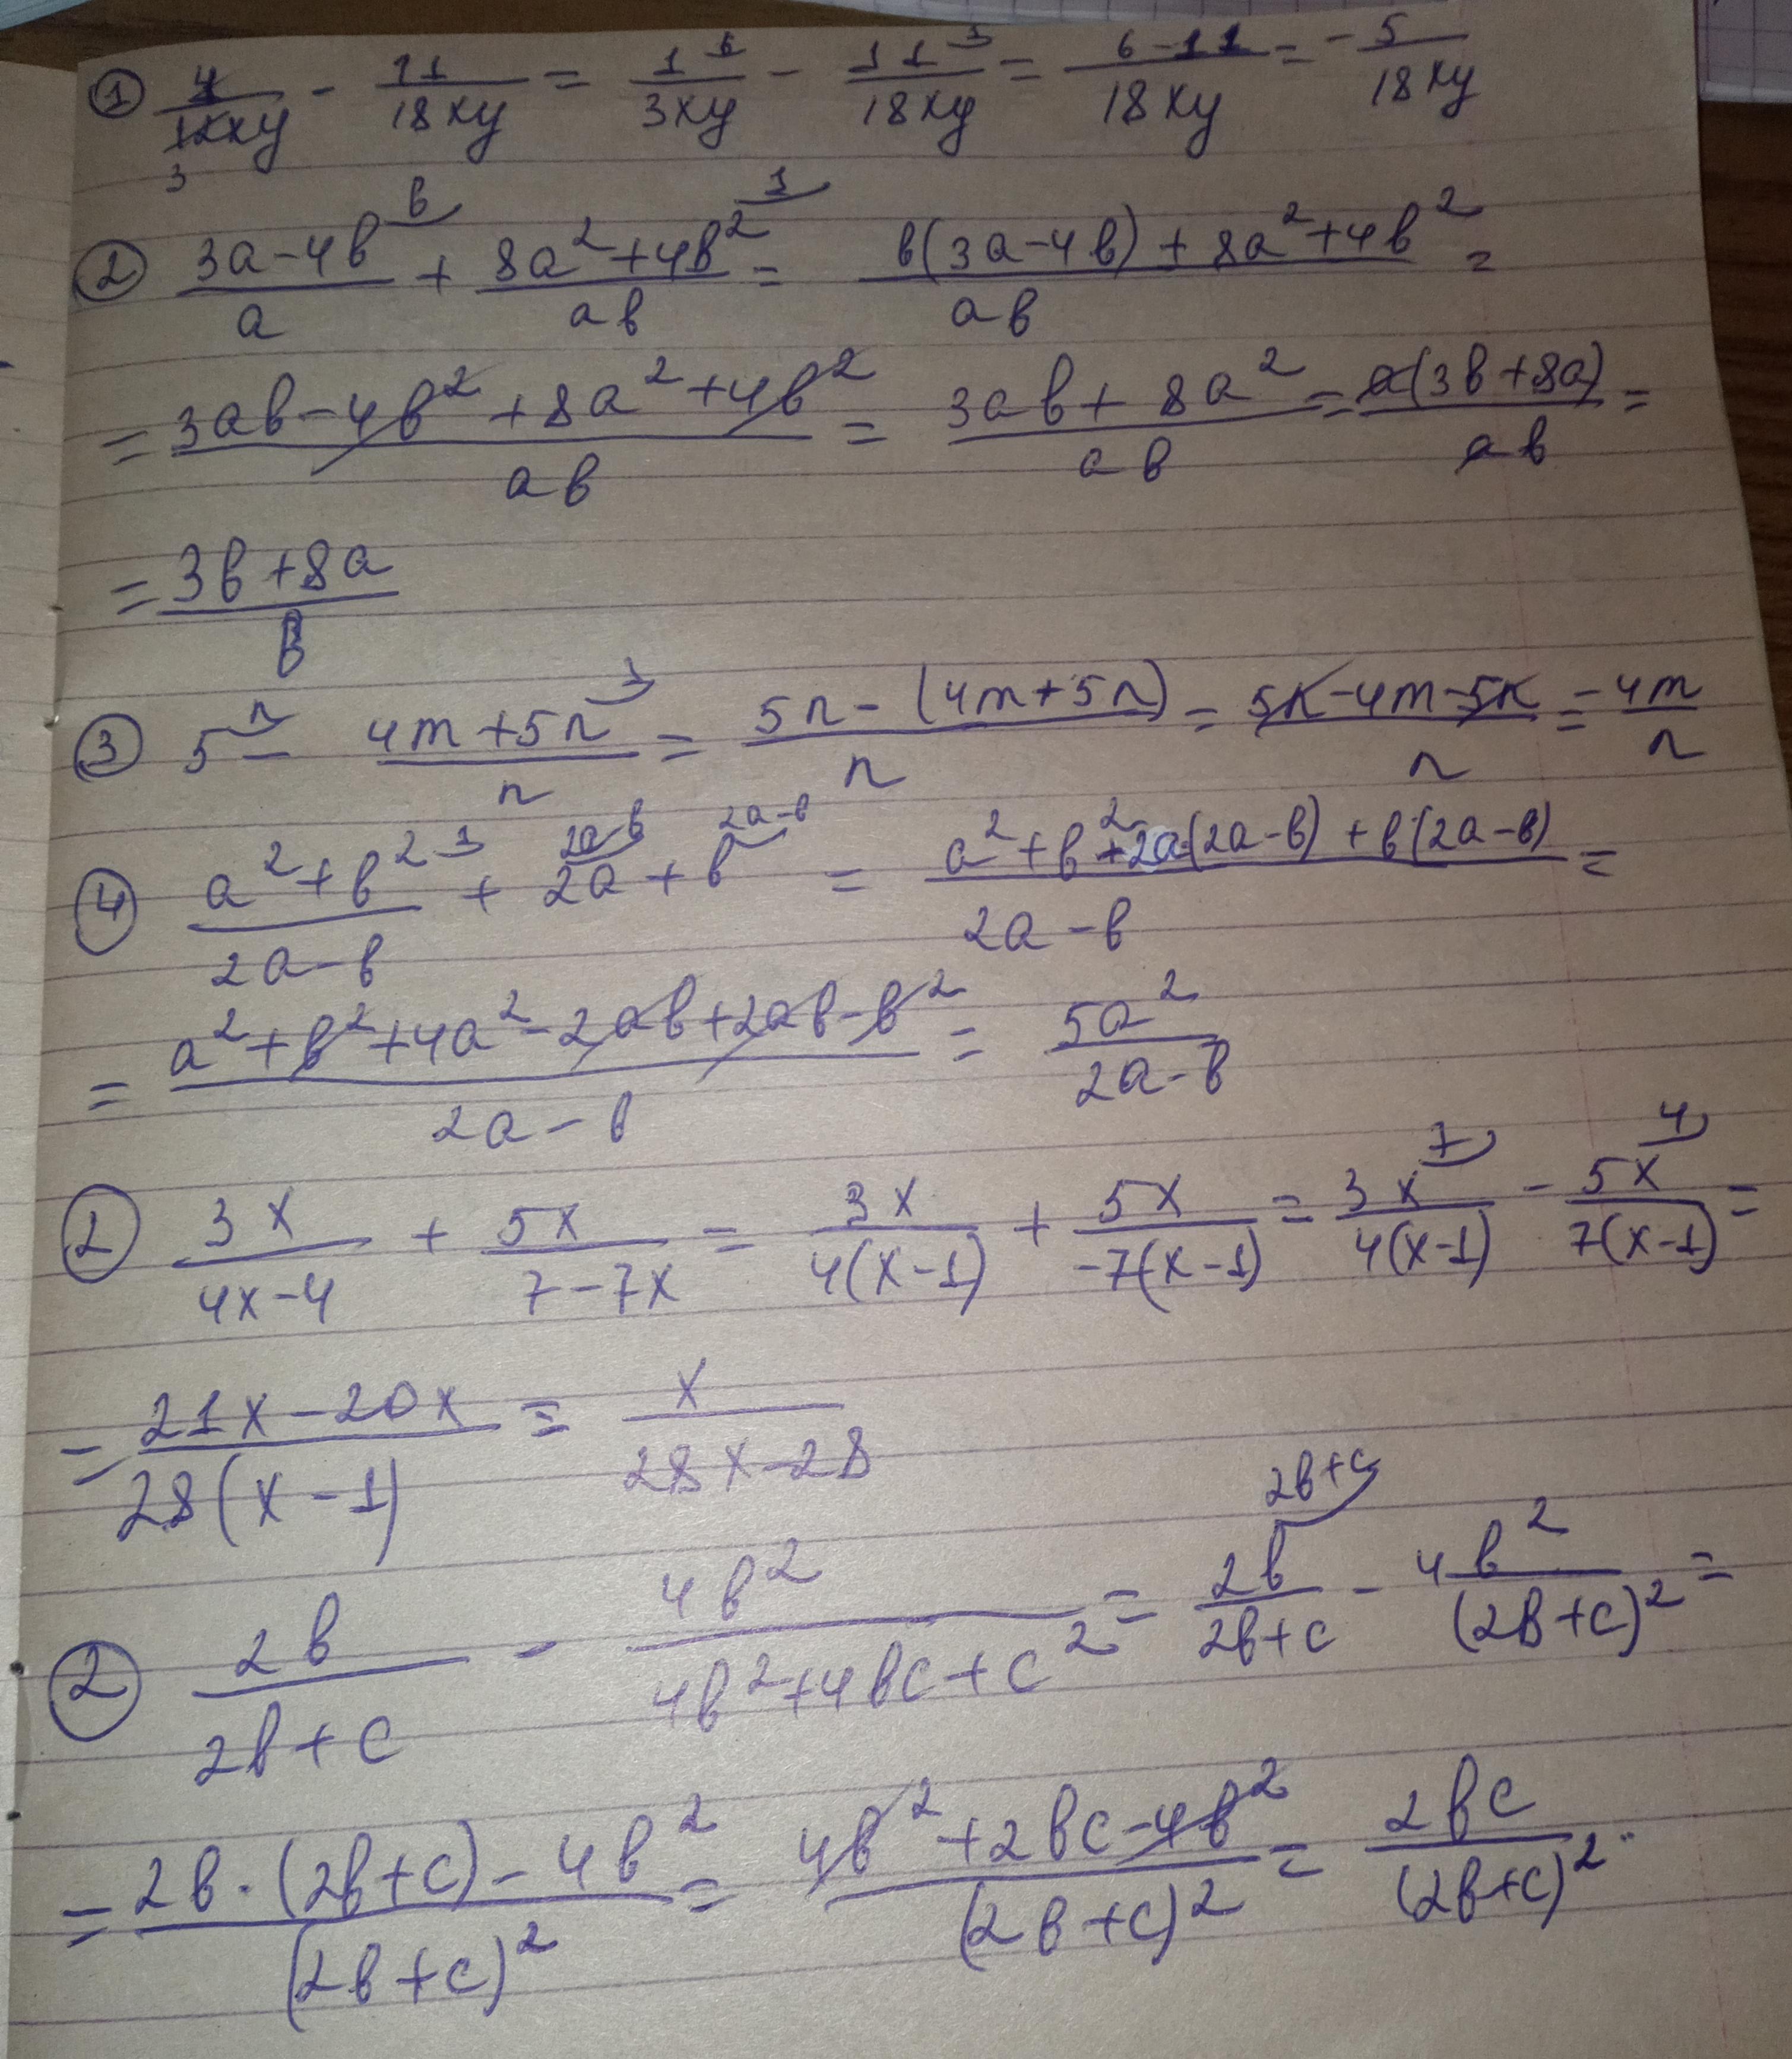 ① 4/12xy - 11/18xy = 1^6/3xy - 11^1/18xy = 6-11/18xy = -5/18xy
3
② 3a-4в^в/a + 8a²+4в²^1/aв = в(3a-4в)+8a²+4в²/aв =
= 3aв-4в²+8a²+4в²/aв = 3aв+8a²/aв = a(3в+8a)/aв =
= 3в+8a/в
③ 5^n - 4m+5n^1/n = 5n-(4m+5n)/n = 5n-4m-5n/n = -4m/n
④ a²+в²^1/2a-в + 2a^2a-в + в^2a-в = a²+в²+2a(2a-в)+в(2a-в)/2a-в =
= a²+в²+4a²-2aв+2aв-в²/2a-в = 5a²/2a-в
① 3x/4x-4 + 5x/7-7x = 3x/4(x-1) + 5x/-7(x-1) = 3x^7/4(x-1) - 5x^4/7(x-1) =
= 21x-20x/28(x-1) = x/28x-28
② 2в/2в+c - 4в²/4в²+4вc+c² = 2в^2в+c/2в+c - 4в²/(2в+c)² =
= 2в·(2в+c)-4в²/(2в+c)² = 4в²+2вc-4в²/(2в+c)² = 2вc/(2в+c)².